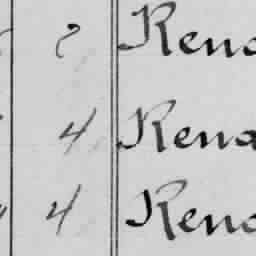 2 Reno
4 Reno
4 Reno